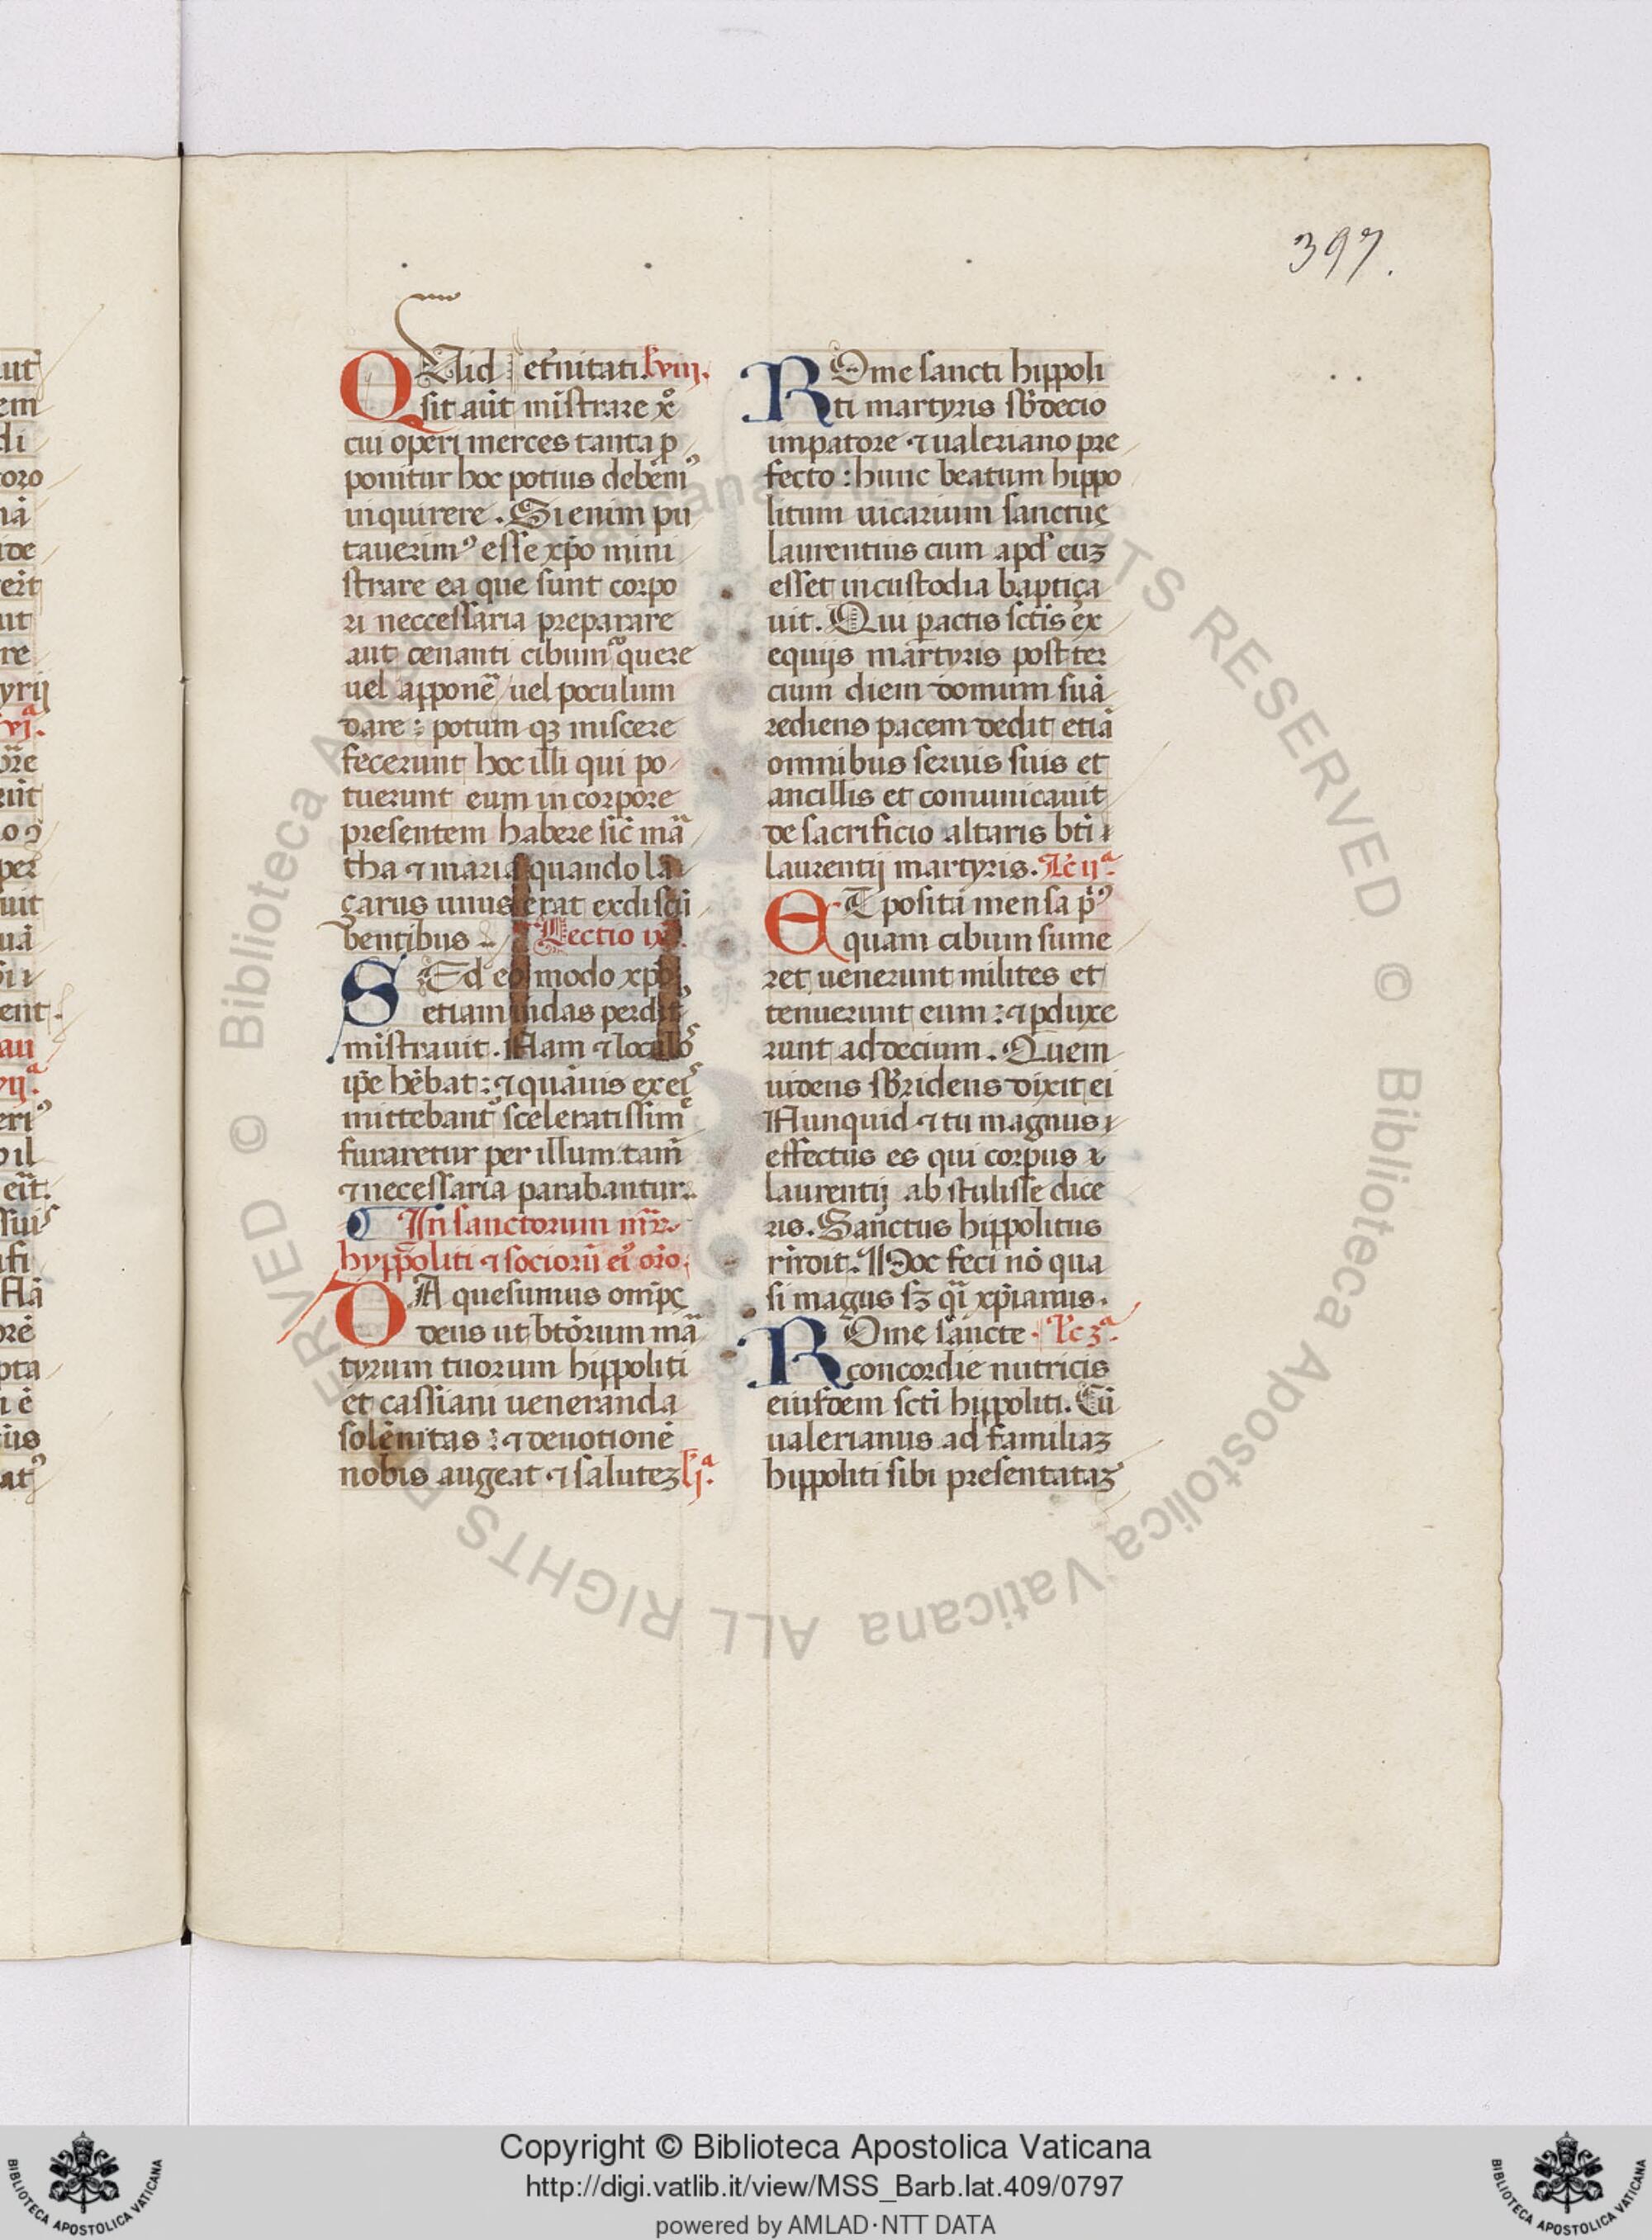 397.
QUid et̃nitati. L̃. viij.
sit aũt mĩstrare xõ
cui operi merces tanta p̱
ponitur hoc potius debem̃⁹
inquirere. Si enim pu
tauerim⁹ esse xp̃o mini
strare ea que sunt corpo
ri neccessaria preparare
aut cenanti cibum querere
uel apponẽ uel poculum
dare: potum qꝫ miscere
fecerunt hoc illi qui po
tuerunt eum in corpore
presentem habere sic̃ ma
tha ⁊ maria quando la
çarus unus erat ex discũ
bentibus. Lectio ix.
SEd eo modo xp̃o
etiam iudas perdit⁹
mĩstrauit. Nam ⁊ loculos
ip̃e hẽbat: ⁊ quãuis ex eis
mittebant᷑ sceleratissime
furaretur per illum tam̃
⁊ necessaria parabantur.
¶ In sanctorum mr̃.
hyppoliti ⁊ sociorũ ei⁹ or̃o.
DA quesumus om̃pc
deus ut btõrum ma
tyrum tuorum hippoliti
et cassiani ueneranda
solẽnitas: ⁊ deuotionẽ
nobis augeat ⁊ salutezꝫ L̃. jª.
ROme sancti hippoli
ti martyris sb̃ decio
impatore ⁊ ualeriano pre
fecto: hunc beatum hippo
litum uicarium sanctus
laurentius cum apd̃ euꝫ
esset in custodia baptiça
uit. Qui pactis sctĩs ex
equijs martyris post ter
cium diem domum suã
rediens pacem dedit etiã
omnibus seruis suis et
ancillis et comunicauit
de sacrificio altaris bti
laurentij martyris. Lc̃ ijª.
ET posita mensa p̱⁹
quam cibum sume
ret uenerunt milites et
tenuerunt eum: ⁊ pduxe
runt ad decium. Quem
uidens sb̃ridens dixit ei
Nunquid ⁊ tu magnus
effectus es qui corpus
laurentij abstulisse dice
ris. Sanctus hippolitus
rñdit. Hoc feci nõ qua
si magus sꝫ qi xp̃ianus.
ROme sancte Lc̃ 3ª.
concordie nutricis
eiusdem scti hippoliti. Cũ
ualerianus ad familiaꝫ
hippoliti sibi presentataꝫ
© Biblioteca Apostolica Vaticana ALL RIGHTS RESERVED © Biblioteca Apostolica Vaticana ALL RIGHTS RESERVED
Copyright © Biblioteca Apostolica Vaticana
http://digi.vatlib.it/view/MSS_Barb.lat.409/0797
powered by AMLAD·NTT DATA
BIBLIOTECA APOSTOLICA VATICANA
BIBLIOTECA APOSTOLICA VATICANA